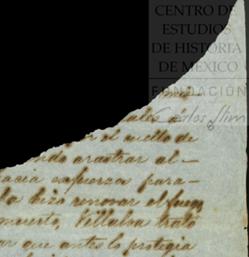 CENTRO DE
ESTUDIOS
DE HISTORIA
DE MÉXICO
FUNDACIÓN
Carlos Slim
ales á
el cuello de
ndo arrastrar al-
acia esfuerza para-
la hizo renovar el fuego
muerto, Villalva trató
ar que antes lo protegia